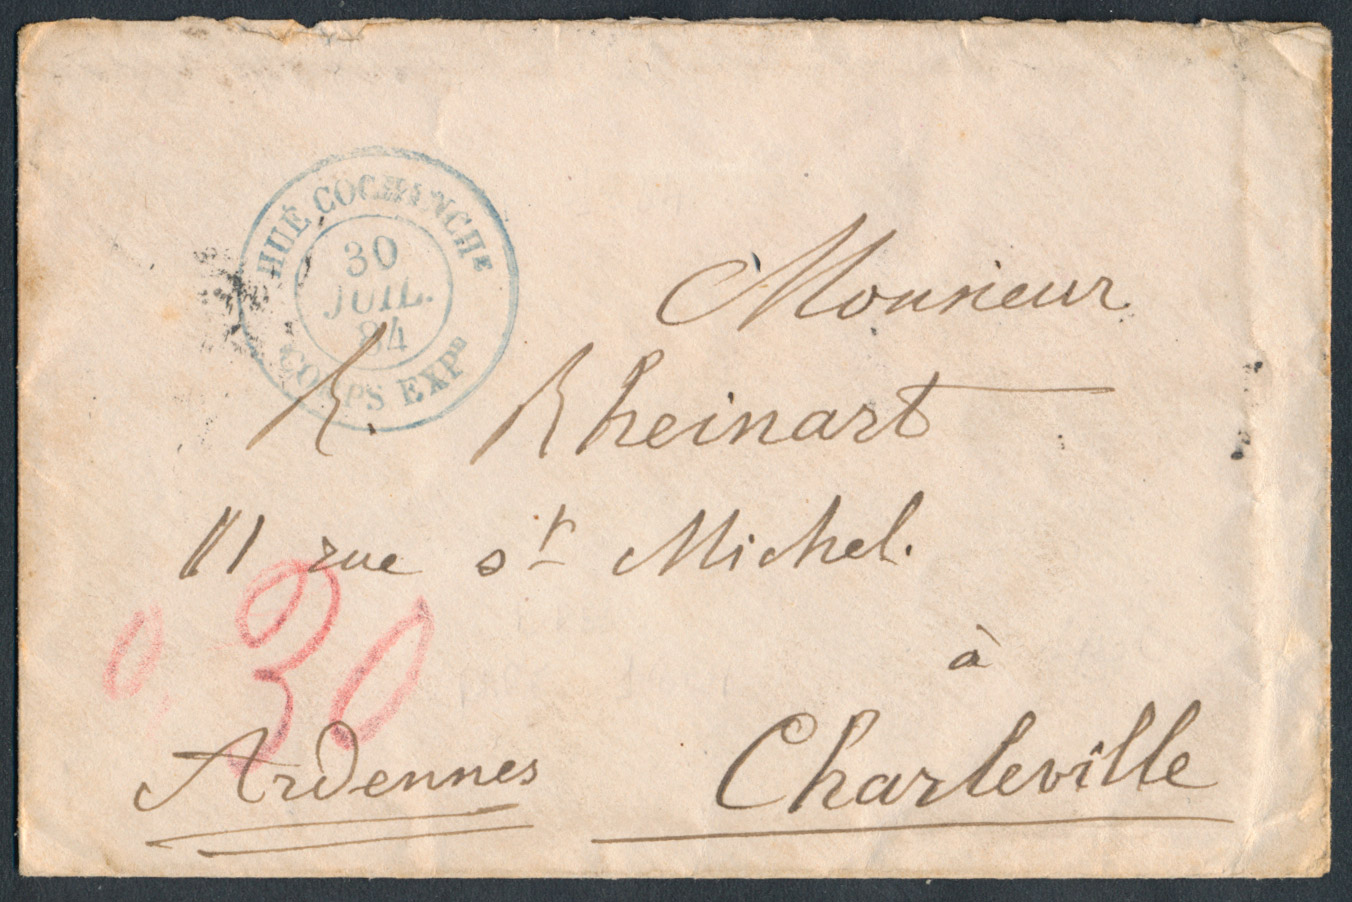 HUÉ COCHINCHE
30
JUIL.
84
CORPS EXPD
Monsieur
R. Rheinart
11 rue st Michel.
0,30
à
Charleville
Ardennes